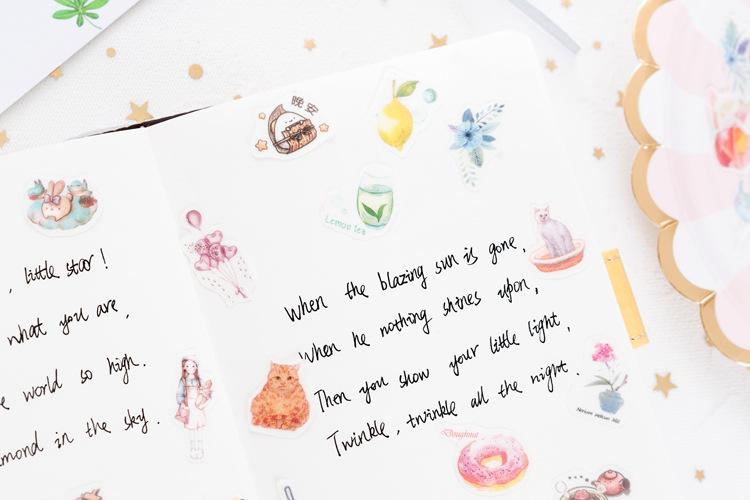 , little star!
what you are,
world so high.
mond in the sky.
晚安
Lemon tea
When the blazing sun is gone,
When he nothing shines upon,
Then you show your little light,
Twinkle, twinkle all the night.
Doughnut